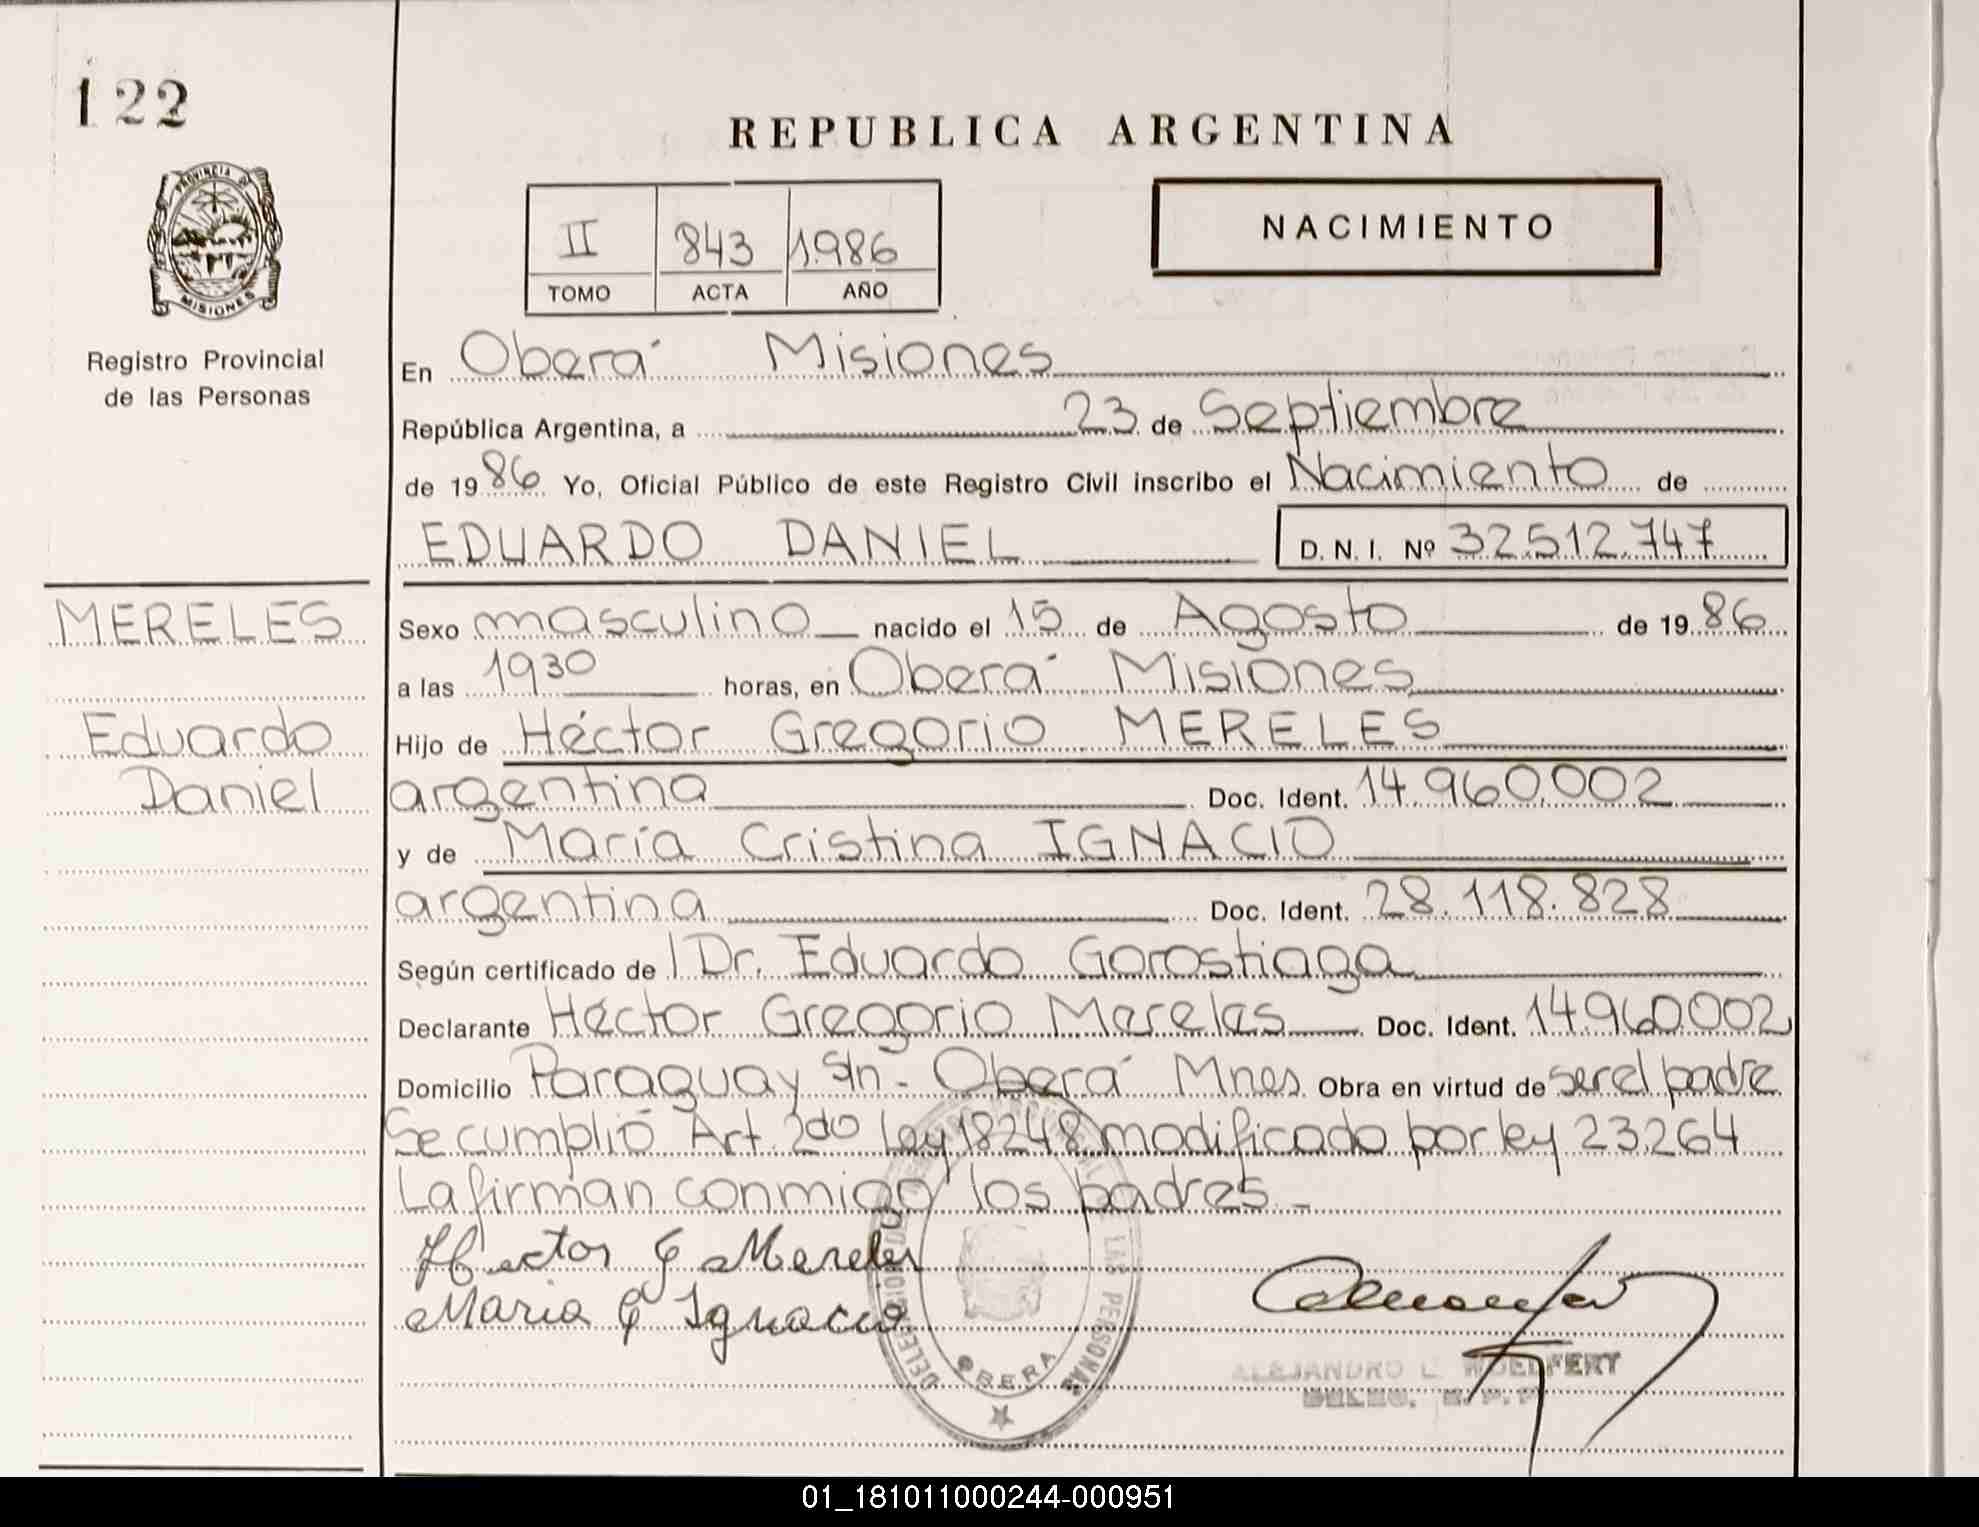 122
PROVINCIA DE
MISIONES
Registro Provincial
de las Personas
REPUBLICA ARGENTINA
II 843 1.986
TOMO ACTA AÑO
NACIMIENTO
En Oberá Misiones
República Argentina, a 23 de Septiembre
de 1986 Yo, Oficial Público de este Registro Civil inscribo el Nacimiento de
EDUARDO DANIEL D. N. I. Nº 32.512.747
MERELES
Eduardo
Daniel
Sexo masculino nacido el 15 de Agosto de 1986
a las 1930 horas, en Oberá Misiones
Hijo de Héctor Gregorio MERELES
argentina Doc. Ident. 14.960.002
y de María Cristina IGNACIO
argentina Doc. Ident. 28.118.828
Según certificado de Dr. Eduardo Gorostiaga
Declarante Héctor Gregorio Mereles Doc. Ident. 14.960.002
Domicilio Paraguay S/n - Oberá Mnes Obra en virtud de ser el padre
Se cumplió Art. 2do Ley 18248 modificado por ley 23.264
La firman conmigo los padres -
Hector G Mereles
Maria C Ignacio
LAS PERSONAS
OBERA
ALEJANDRO L. WOELFERT
DELEG. R. P. P.
01_181011000244-000951